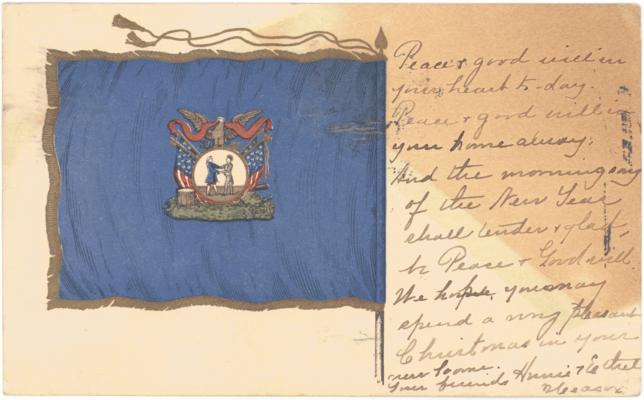 Peace & good will in
your heart to-day.
Peace & good will in
your home alway;
And the morning song
of the New Year
shall tender & glad,
be Peace & Good will.
We hope you may
spend a very pleasant
Christmas in your
new home.
Your friends & Ethel